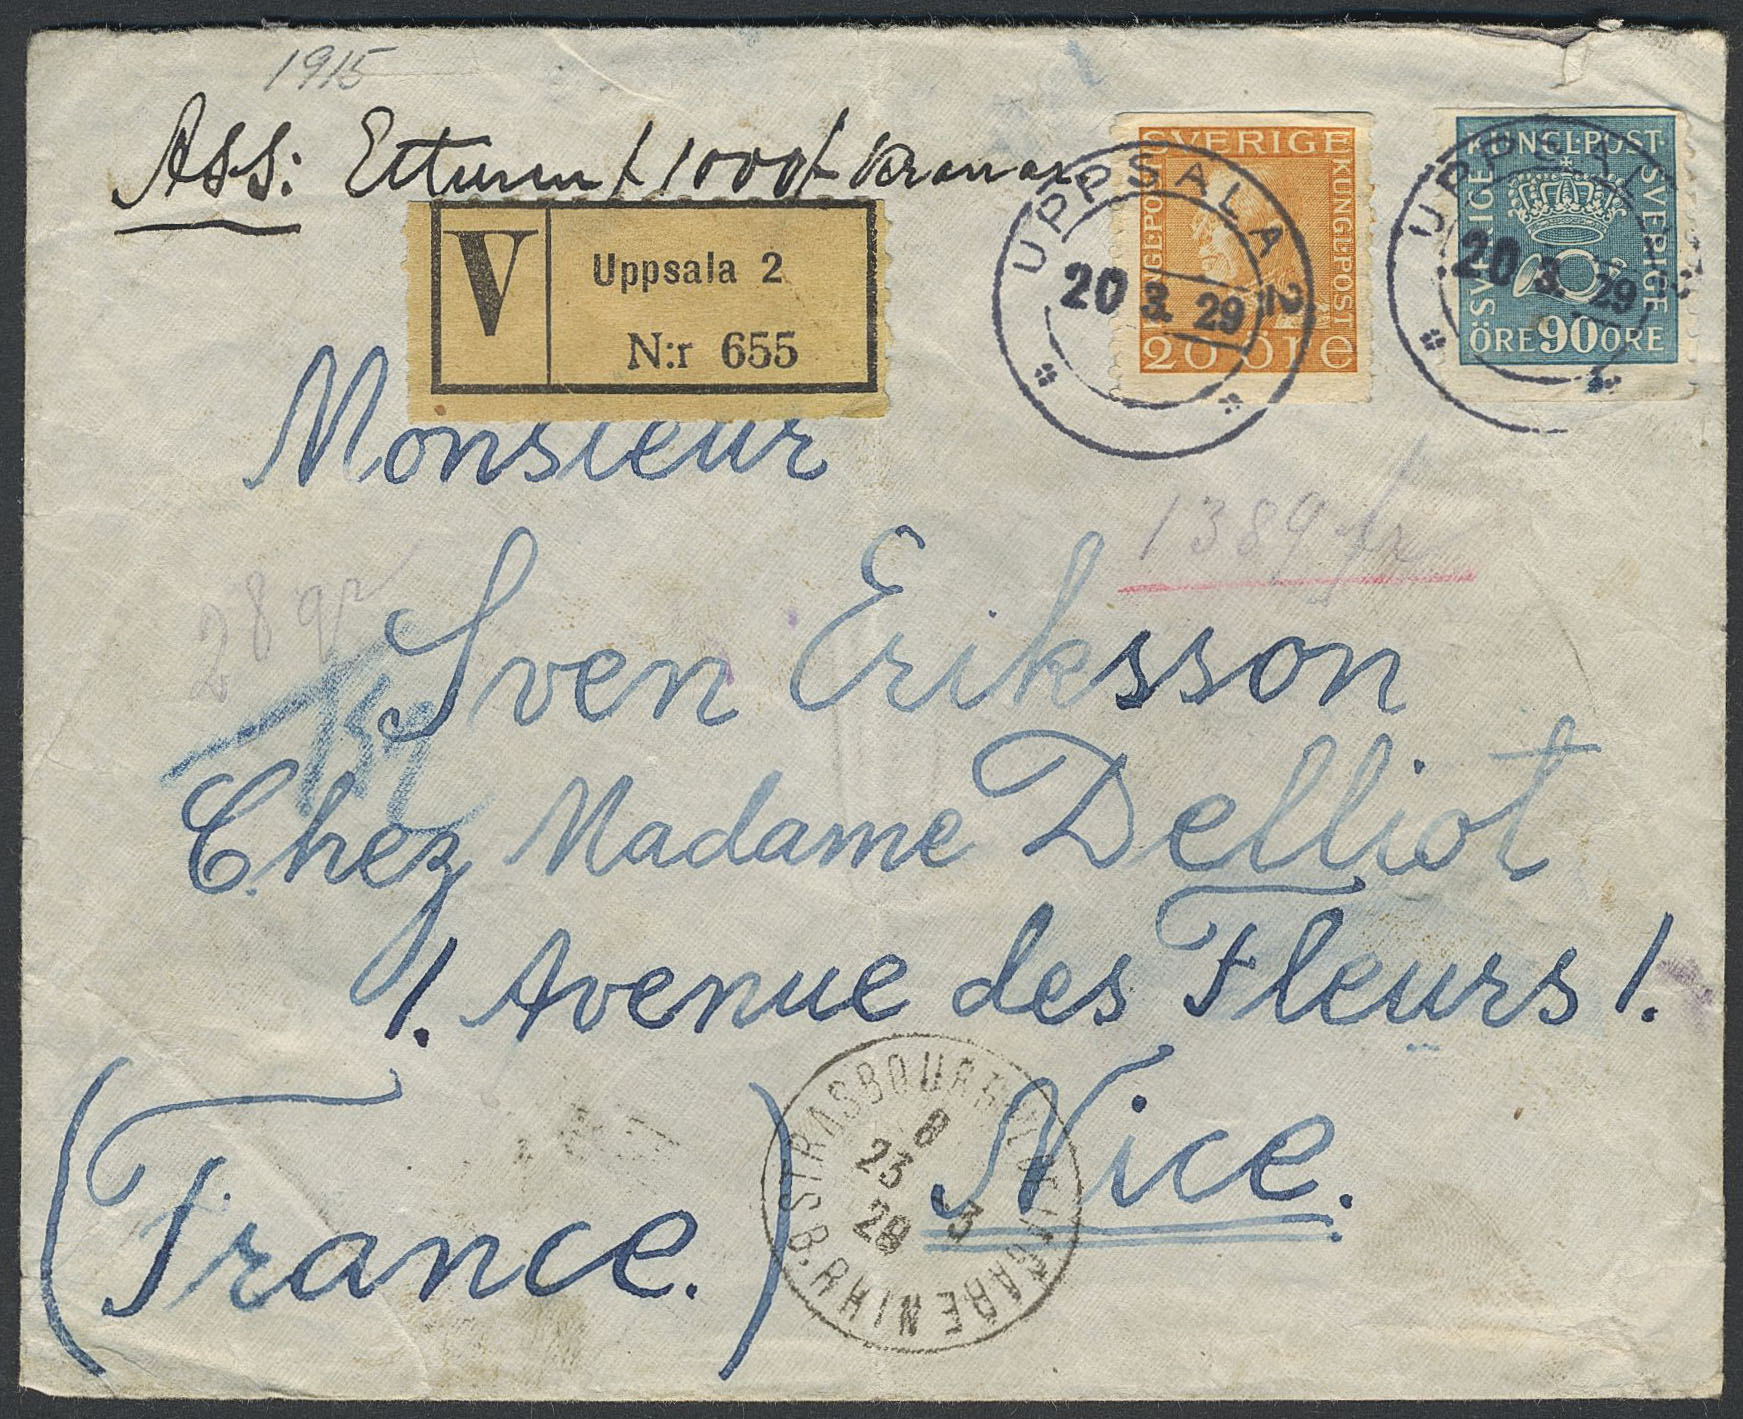 1915
Ass: Ettusen /1000/ Kronor
V
Uppsala 2
N:r 655
UPPSALA 2
20 3. 29
SVERIGE
KUNGL.POST
20 ÖRE
UPPSALA 2
20 3. 29
KUNGL.POST
SVERIGE
SVERIGE
ÖRE 90 ÖRE
Monsieur
1389 fr
28 gr
Sven Eriksson
Chez Madame Delliot
1. Avenue des Fleurs 1.
Nice.
(France.)
STRASBOURG
GARE
B. RHIN
8
23 3